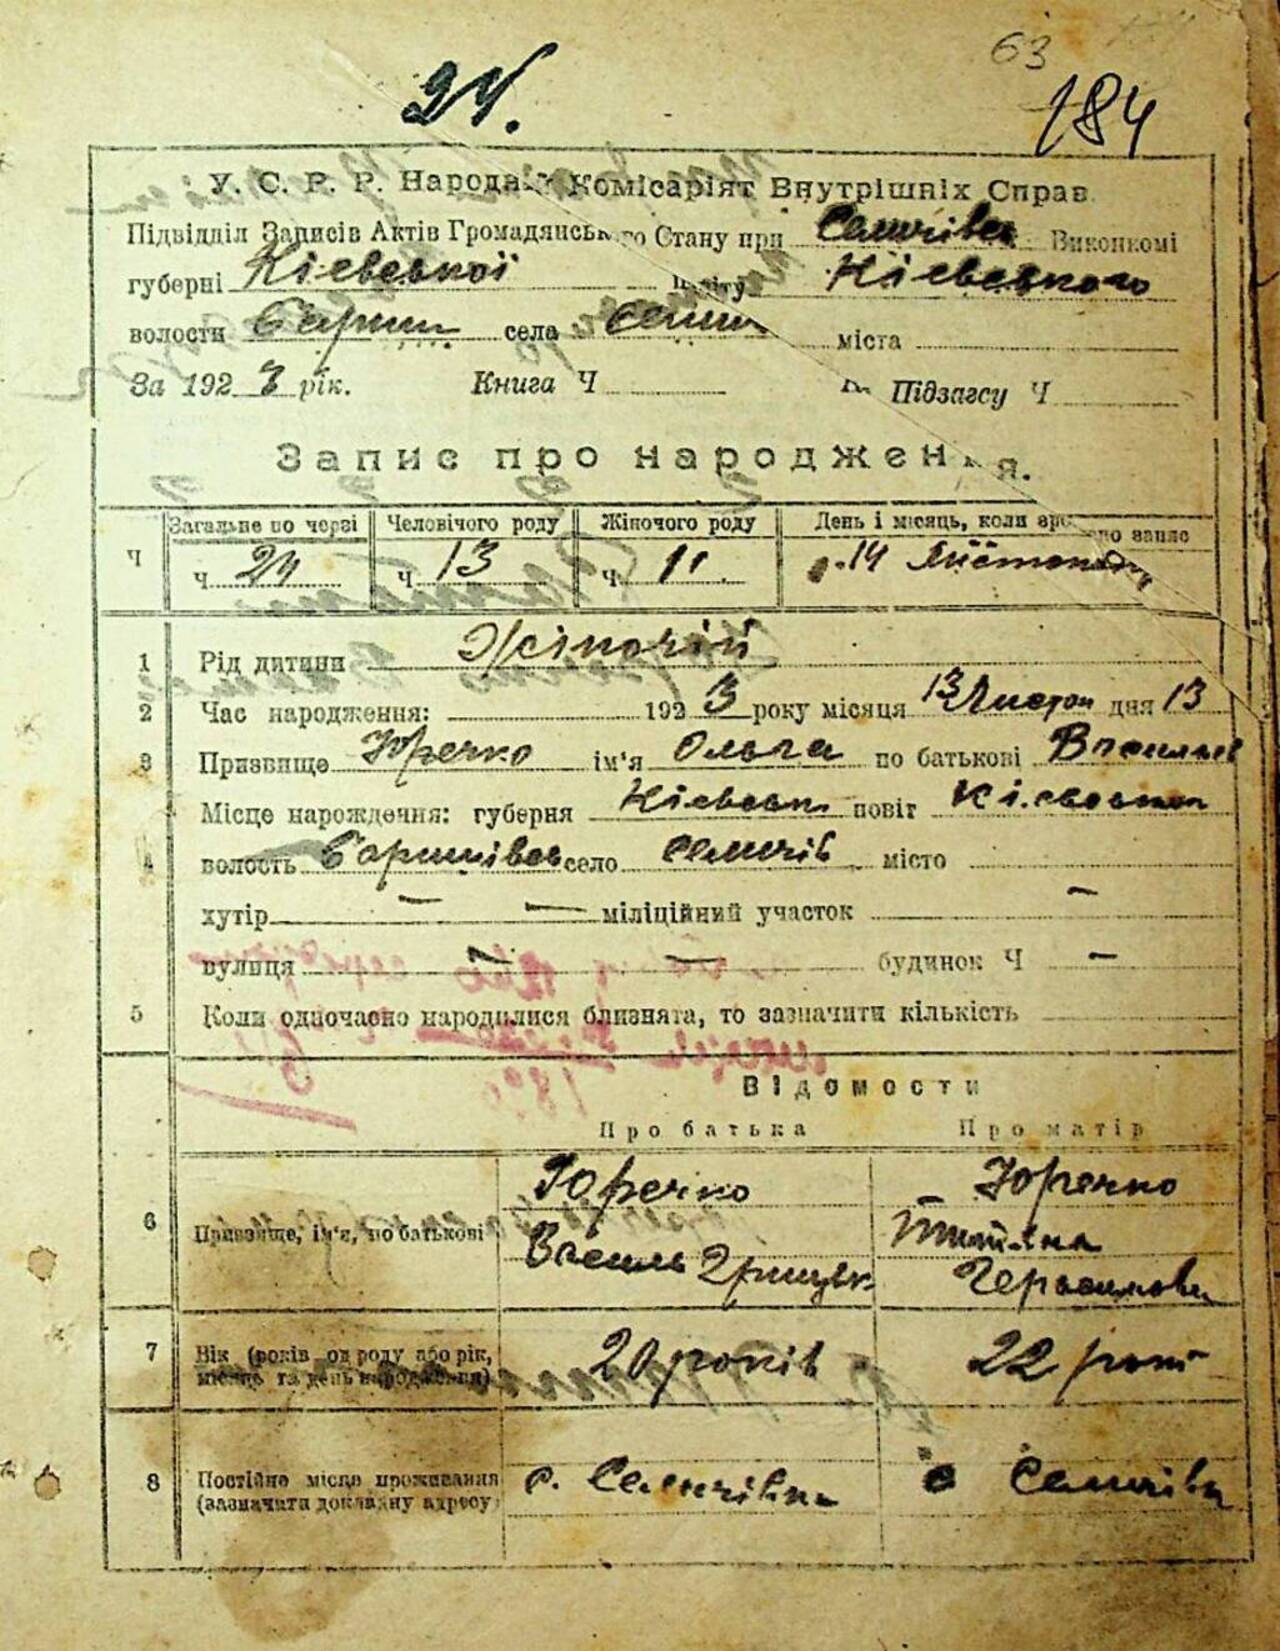 63
24.
184
У. С. Р. Р. Народний Комісаріят Внутрішніх Справ
Підвідділ Записів Актів Громадянського Стану при Семигівск Виконкомі
губерні Кіевської повіту Кіевського
волости села міста
За 1923 рік. Книга Ч Підзагсу Ч
Запис про народження.
Загальне по черзі Человічого роду Жіночого роду День і місяць, коли зроблено запис
Ч Ч 24 Ч 13 Ч 11 14 Листопад
1 Рід дитини Жіночій
2 Час народження: 1923 року місяця 13 Листоп дня 13
3 Призвище Юречко ім'я Ольга по батькові Васильев
Місце народження: губерня Кіевськ повіт Кіевськ
4 волость село місто
хутір — — міліційний участок —
вулиця — — будинок Ч —
5 Коли одночасно народилися близнята, то зазначити кількість
Відомости
Про батька Про матір
Юречко Юречко
6 Призвище, ім'я, по батькові
Василь Грицьк
7 Вік (років од роду або рік, 20 років 22 рокі
місяць та день народження)
8 Постійне місце проживання с. с
(зазначити докладну адресу)